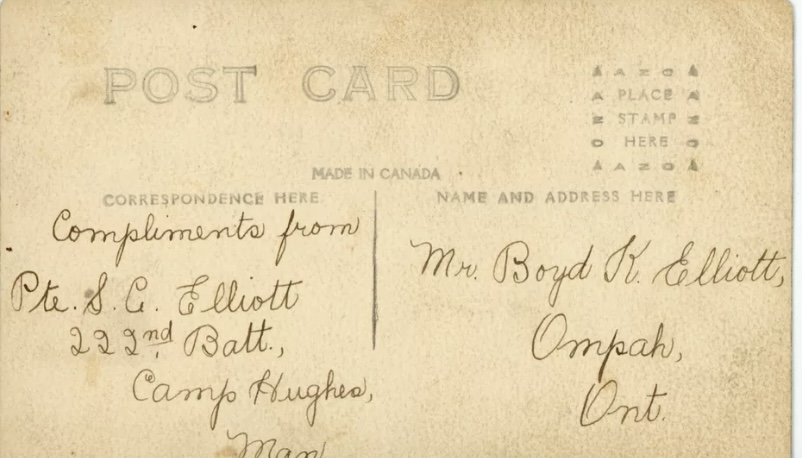 POST CARD
AZO
PLACE
STAMP
HERE
AZO
MADE IN CANADA
CORRESPONDENCE HERE
NAME AND ADDRESS HERE
Compliments from
Pte. S. C. Elliott
222nd Batt.,
Camp Hughes,
Man
Mr. Boyd K. Elliott,
Ompah,
Ont.